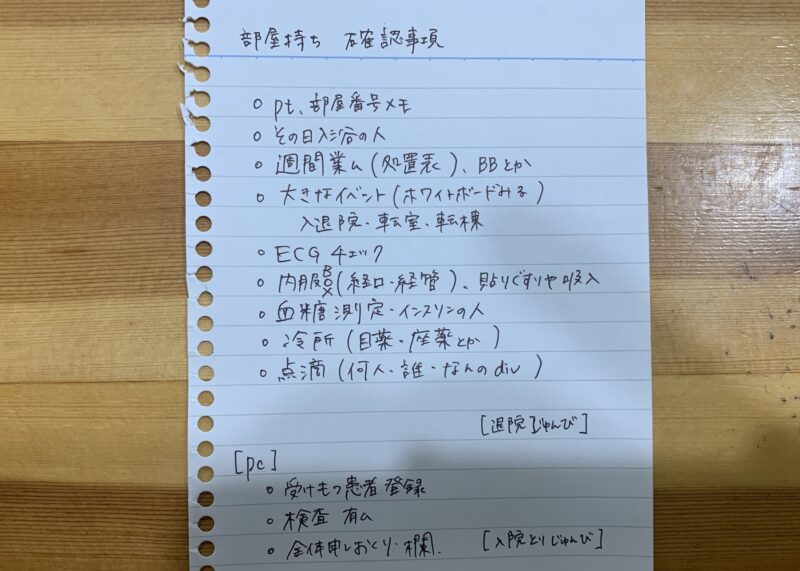 部屋持ち 確認事項
○ pt、部屋番号メモ
○ その日入浴の人
○ 週間業ム(処置表)、BBとか
○ 大きなイベント(ホワイトボードみる)
入退院・転室・転棟
○ ECG チェック
○ 内服BOX(経口・経管)、貼りぐすりや吸入
○ 血糖測定・インスリンの人
○ 冷所(目薬・座薬とか)
○ 点滴(何人・誰・なんのdiv)
[退院じゅんび]
[pc]
○ 受けもつ患者 登録
○ 検査 有ム
○ 全体申しおくり・欄. [入院とりじゅんび]